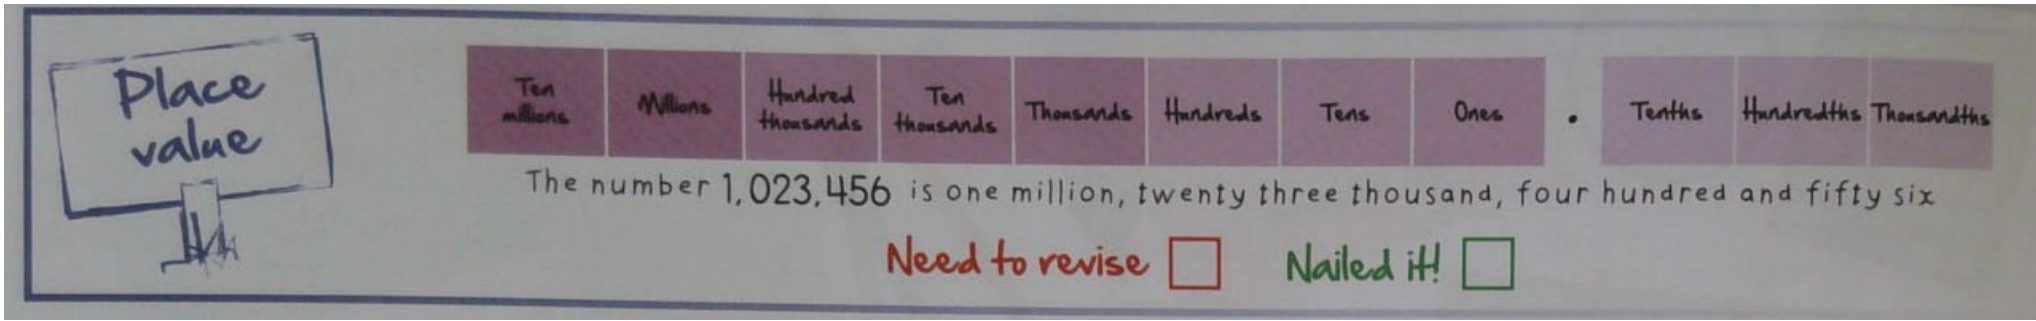 Place
value
Ten
millions
Millions
Hundred
thousands
Ten
thousands
Thousands
Hundreds
Tens
Ones
.
Tenths
Hundredths
Thousandths
The number 1,023,456 is one million, twenty three thousand, four hundred and fifty six
Need to revise
Nailed it!